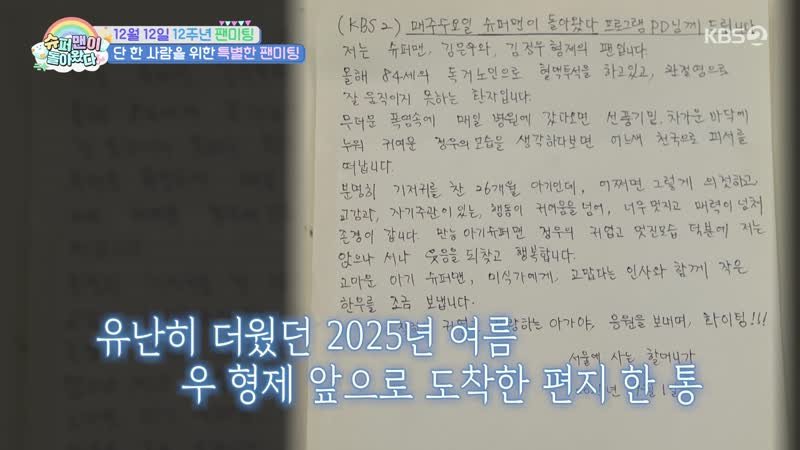 슈퍼맨이
돌아왔다
12월 12일 12주년 팬미팅
단 한 사람을 위한 특별한 팬미팅
KBS2
(KBS2) 매주수요일 슈퍼맨이 돌아왔다 프로그램 PD님께 드립니다
저는 슈퍼맨, 김은우와, 김정우 형제의 팬입니다.
올해 84세의 독거노인으로 혈액투석을 하고있고, 관절염으로
잘 움직이지 못하는 환자입니다.
무더운 폭염속에 매일 병원에 갔다오면 선풍기밑, 차가운 바닥에
누워 귀여운 정우의 모습을 생각하다보면 어느새 천국으로 피서를
떠납니다.
분명히 기저귀를 찬 26개월 아기인데, 어쩌면 그렇게 의젓하고
교감과, 자기주관이 있는, 행동이 귀여움을 넘어, 너무 멋지고 매력이 넘쳐
존경이 갑니다. 만능 아기슈퍼맨 정우의 귀엽고 멋진모습 덕분에 저는
앉으나 서나 웃음을 되찾고 행복합니다.
고마운 아기 슈퍼맨, 미식가에게, 고맙다는 인사와 함께 작은
한우를 조금 보냅니다.
하는 아가야, 응원을 보내며, 화이팅!!!
서울에 사는 할머니가
유난히 더웠던 2025년 여름
우 형제 앞으로 도착한 편지 한 통